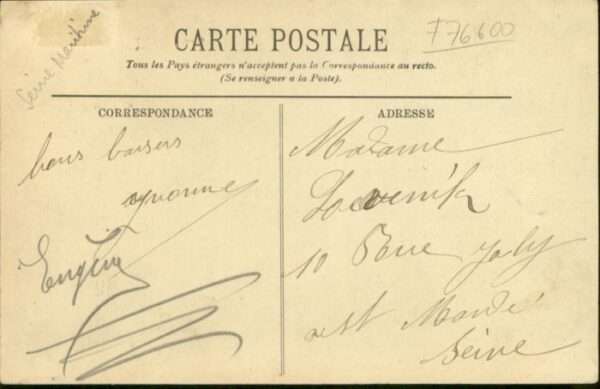 Seine Maritime
F76600
CARTE POSTALE
Tous les Pays étrangers n'acceptent pas la Correspondance au recto.
(Se renseigner à la Poste).
CORRESPONDANCE
bons baisers
yvonne
Eugène
ADRESSE
Madame
10 Rue
Mandé
Seine